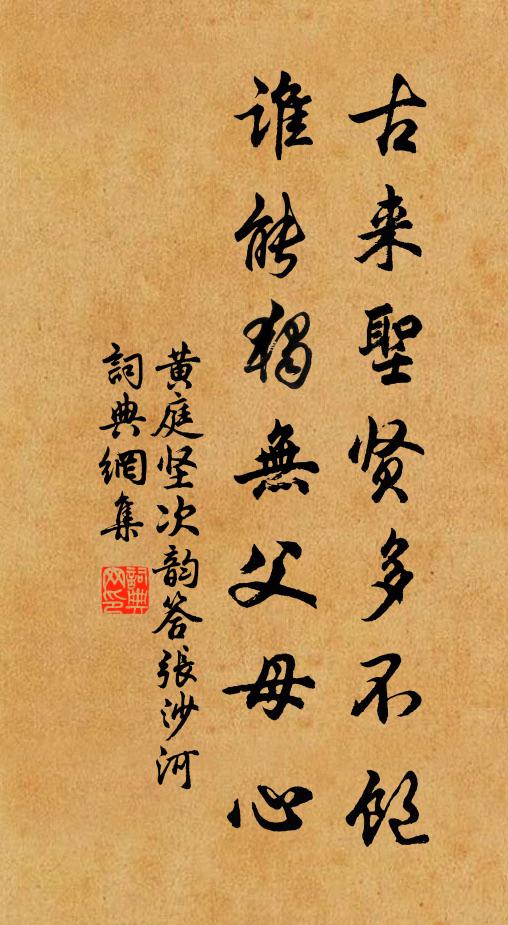 古来聖贤多不飽
谁能独無父母心
黄庭坚次韵答張沙河
詞典網集
詞典网印